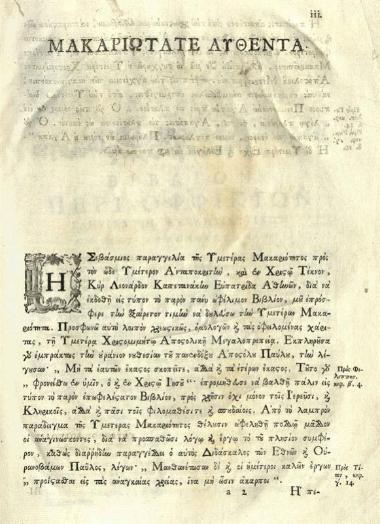 iii.
ΜΑΚΑΡΙΩΤΑΤΕ ΑΥΘΕΝΤΑ.
Η Σεβάσμιος παραγγελία τῆς Υμετέρας Μακαριότητος πρὸς
τὸν ὧδε Υμέτερον Ανταποκριτὴν, καὶ ἐν Χριστῷ Τέκνον,
Κὺρ Λιονάρδον Καπετανάκην Εὐπατρίδα Αθηνῶν, διὰ νὰ
ἐκδοθῇ εἰς τύπον τὸ παρὸν πανωφέλιμον Βιβλίον, μοῦ πρόσ-
φερε τὴν ἐξαίρετον τιμὴν νὰ δουλεύσω τὴν Υμετέραν Μακα-
ριότητα. Προσφωνῶ αὐτῇ λοιπὸν χρεωστικῶς, ὁμολογῶν ᾗ τὰς ὀφειλομένας χάρι-
τας, τῇ Υμετέρᾳ Χριστομιμήτῳ Αποστολικῇ Μεγαλοπρεπείᾳ. Εκπληροῦσα
γὰρ ἐμπράκτως τὴν οὐρανίαν νουθεσίαν τοῦ πανενδόξου Αποστόλου Παύλου, τὴν λέ-
γουσαν „ Μὴ τὰ ἑαυτῶν ἕκαστος σκοπεῖτε, ἀλλὰ καὶ τὰ ἑτέρων ἕκαστος. Τοῦτο γὰρ
„ φρονείσθω ἐν ὑμῖν, ὃ καὶ ἐν Χριστῷ Ιησοῦ „ ἐπρομήθευσε νὰ βαλθῇ πάλιν εἰς
τύπον τὸ παρὸν ἐπωφελέστατον Βιβλίον, πρὸς χρῆσιν ὄχι μόνον τοῖς Ιερεῦσι, καὶ
Κληρικοῖς, ἀλλὰ καὶ πᾶσι τοῖς Φιλομαθέσι καὶ σπουδαίοις. Απὸ τὸ λαμπρὸν
παράδειγμα τῆς Υμετέρας Μακαριότητος θέλουσιν ὠφεληθῇ πολλὰ μᾶλλον
οἱ ἀναγινώσκοντες, διὰ νὰ προσπαθῶσι λόγῳ καὶ ἔργῳ τὸ τοῦ πλησίον συμφέ-
ρον, καθὼς διαρρήδην παραγγέλλει ὁ αὐτὸς Διδάσκαλος τῶν Εθνῶν καὶ Οὐ-
ρανοβάμων Παῦλος, λέγων „ Μανθανέτωσαν δὲ καὶ οἱ ἡμέτεροι καλῶν ἔργων
„ προΐστασθαι εἰς τὰς ἀναγκαίας χρείας, ἵνα μὴ ὦσιν ἄκαρποι „
Πρὸς Φι-
κεφ. β. 4.
Πρὸς Τίτ.
κεφ. γ. 14.
a 2 Η πί-